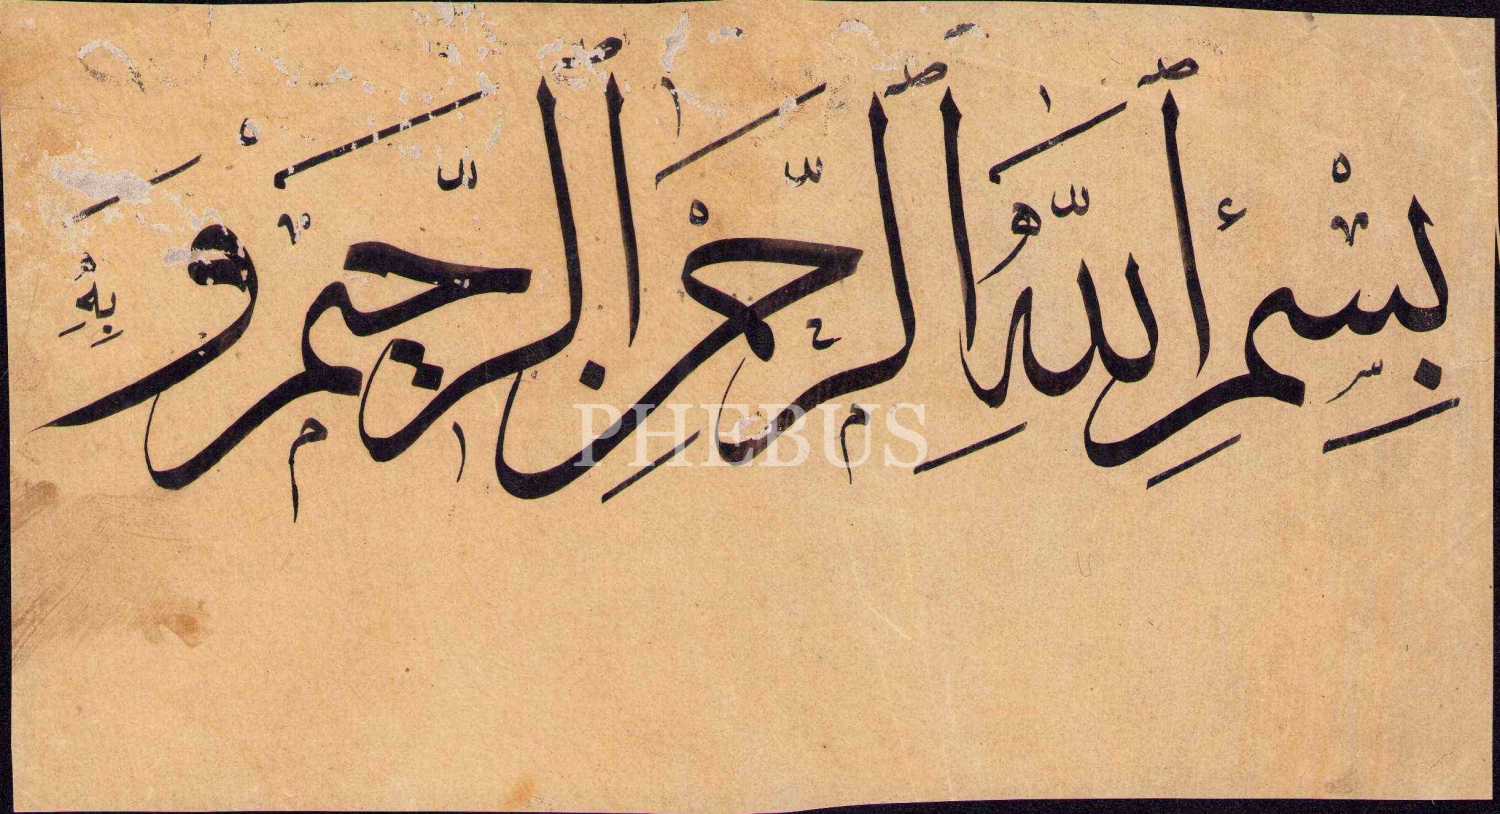 بِسْمِ ٱللَّهِ ٱلرَّحْمٰنِ ٱلرَّحِيمِ وَ بِهِ
PHEBUS